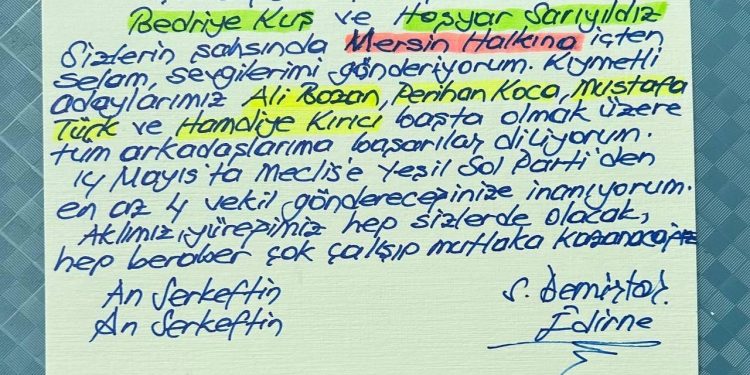 Bedriye Kuş ve Hoşyar Sarıyıldız
Sizlerin şahsında Mersin Halkına içten
selam, sevgilerimi gönderiyorum. Kıymetli
adaylarımız Ali Bozan, Perihan Koca, Mustafa
Türk ve Hamdiye Kırıcı başta olmak üzere
tüm arkadaşlarıma başarılar diliyorum.
14 Mayıs'ta Meclis'e Yeşil Sol Parti'den
en az 4 vekil göndereceğinize inanıyorum.
Aklımız, yüreğimiz hep sizlerde olacak,
hep beraber çok çalışıp mutlaka kazanacağız
An Serkeftin S. Demirtaş.
An Serkeftin Edirne